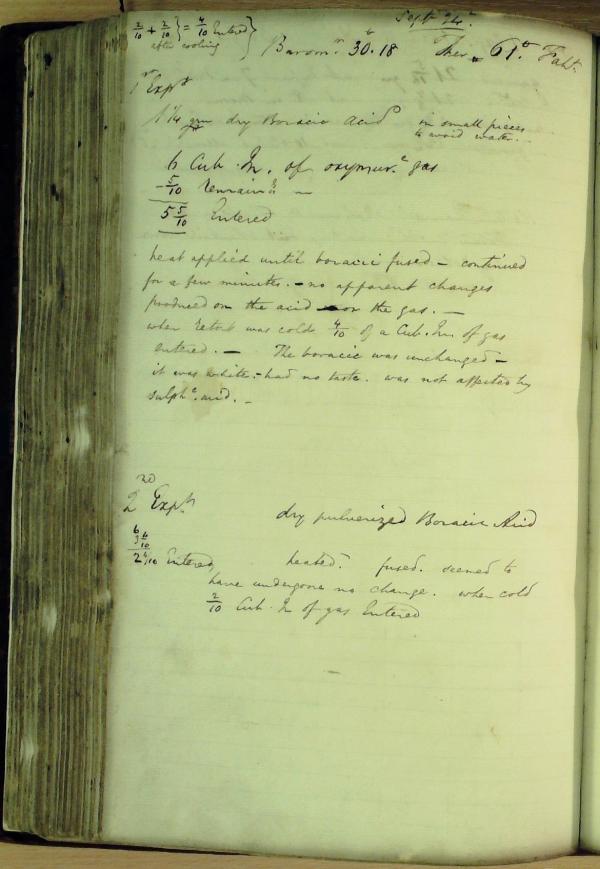 Septr 24th
2/10 + 2/10 } = 4/10 Entered }
after cooling
Baromr 30.18 Ther 61° Faht.
1st Expt
14 grn dry Boracic Acid in small pieces
to avoid water.
6 Cub. In. of oxymurc gas
5/10 Remaind
5 5/10 Entered
heat applied until boracic fused – continued
for a few minutes. – no apparent changes
produced on the acid or the gas. –
when retort was cold 4/10 of a Cub. In. of gas
entered. – The boracic was unchanged –
it was white – had no taste. was not affected by
sulphc acid. –
2nd Expt
dry pulverized Boracic Acid
6
3 6/10
2 4/10 Entered heated. fused. seemed to
have undergone no change. when cold
2/10 Cub. In of gas Entered